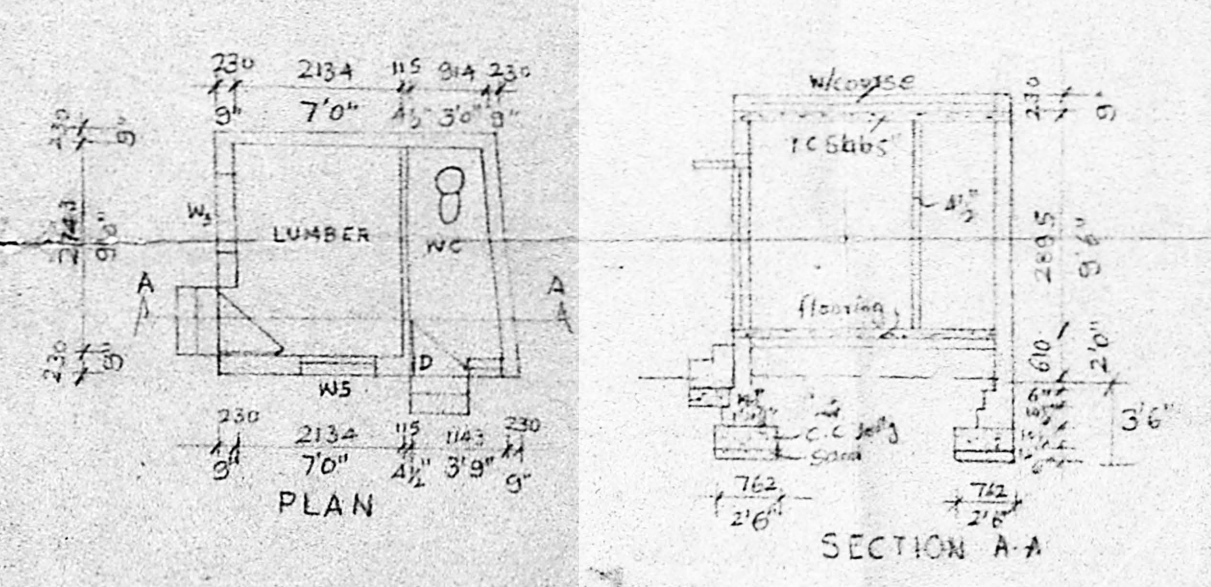 230 2134 115 914 230
9" 7'0" 4½" 3'0" 9"
230 9"
W5
2743
9'0"
LUMBER
WC
A A
230 9"
D
W5
230 2134 115 1143 230
9" 7'0" 4½" 3'9" 9"
PLAN
w/course
230 9"
r c slabs
4½"
2895
9'6"
flooring
610
2'0"
3'6"
C.C
Sand
762 762
2'6" 2'6"
SECTION A-A